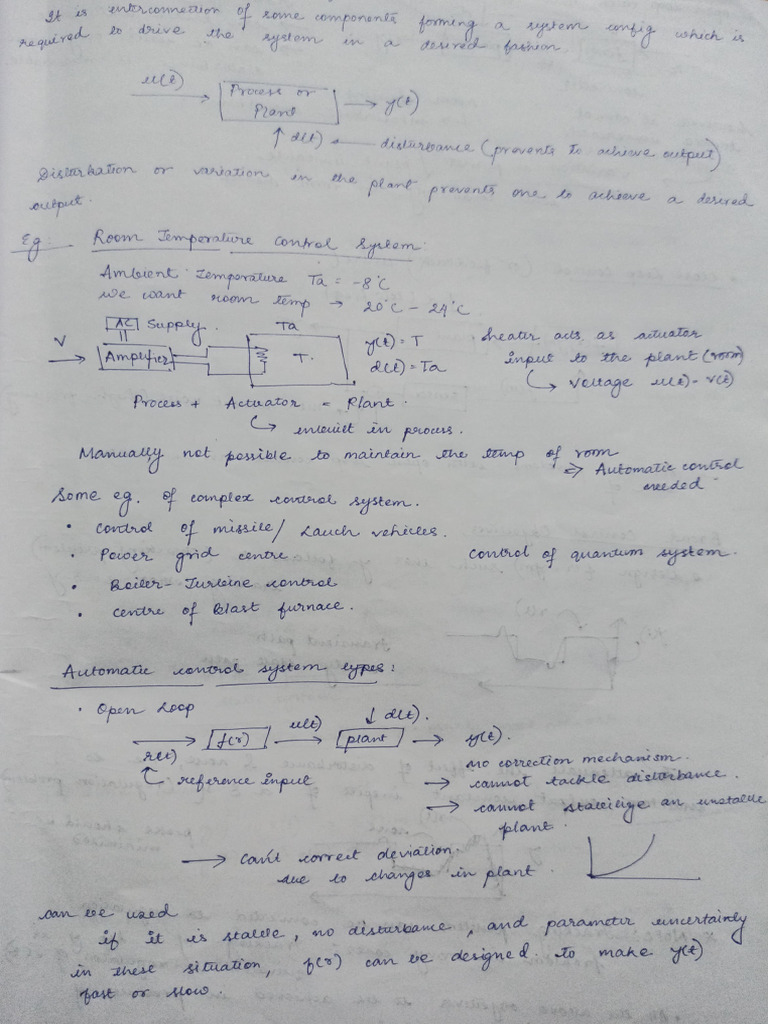 It is interconnection of some components forming a system config which is
required to drive the system in a desired fashion.
u(t)
Process or
Plant
y(t)
d(t) disturbance (prevents to achieve output)
Disturbation or variation in the plant prevents one to achieve a desired
output.
Eg: Room Temperature control System:
Ambient Temperature Ta = -8°C
we want room temp → 20°C - 24°C
AC Supply.
Ta
V
Amplifier
T.
y(t) = T
d(t) = Ta
heater acts as actuator
input to the plant (room)
↳ voltage u(t) = v(t)
Process + Actuator = Plant.
↳ inbuilt in process.
Manually not possible to maintain the temp of room
⇒ Automatic control
needed
Some eg. of complex control system.
• control of missile/ Lauch vehicles.
• Power grid centre.
control of quantum system.
• Boiler-Turbine control
• centre of Blast furnace.
Automatic control system types:
• Open Loop
r(t)
f(r)
u(t)
↓ d(t).
plant
→ y(t).
reference input
no correction mechanism.
→ cannot tackle disturbance.
→ cannot stabilize an unstable
plant.
→ Can't correct deviation.
due to changes in plant.
can be used
if it is stable, no disturbance, and parameter uncertainly
in these situation, f(r) can be designed to make y(t)
fast or slow.